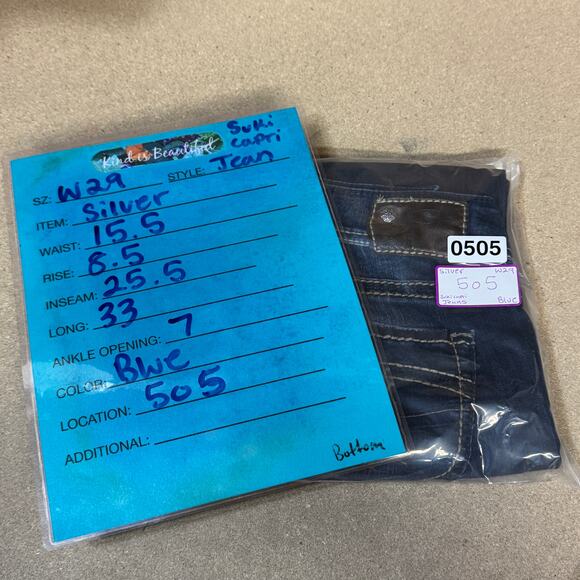 Kind is Beautiful
Suki
capri
SZ: W29 STYLE: Jean
ITEM: Silver
WAIST: 15.5
RISE: 8.5
INSEAM: 25.5
LONG: 33
ANKLE OPENING: 7
COLOR: Blue
LOCATION: 505
ADDITIONAL:
Bottom
0505
Silver W29
505
Jeans Blue